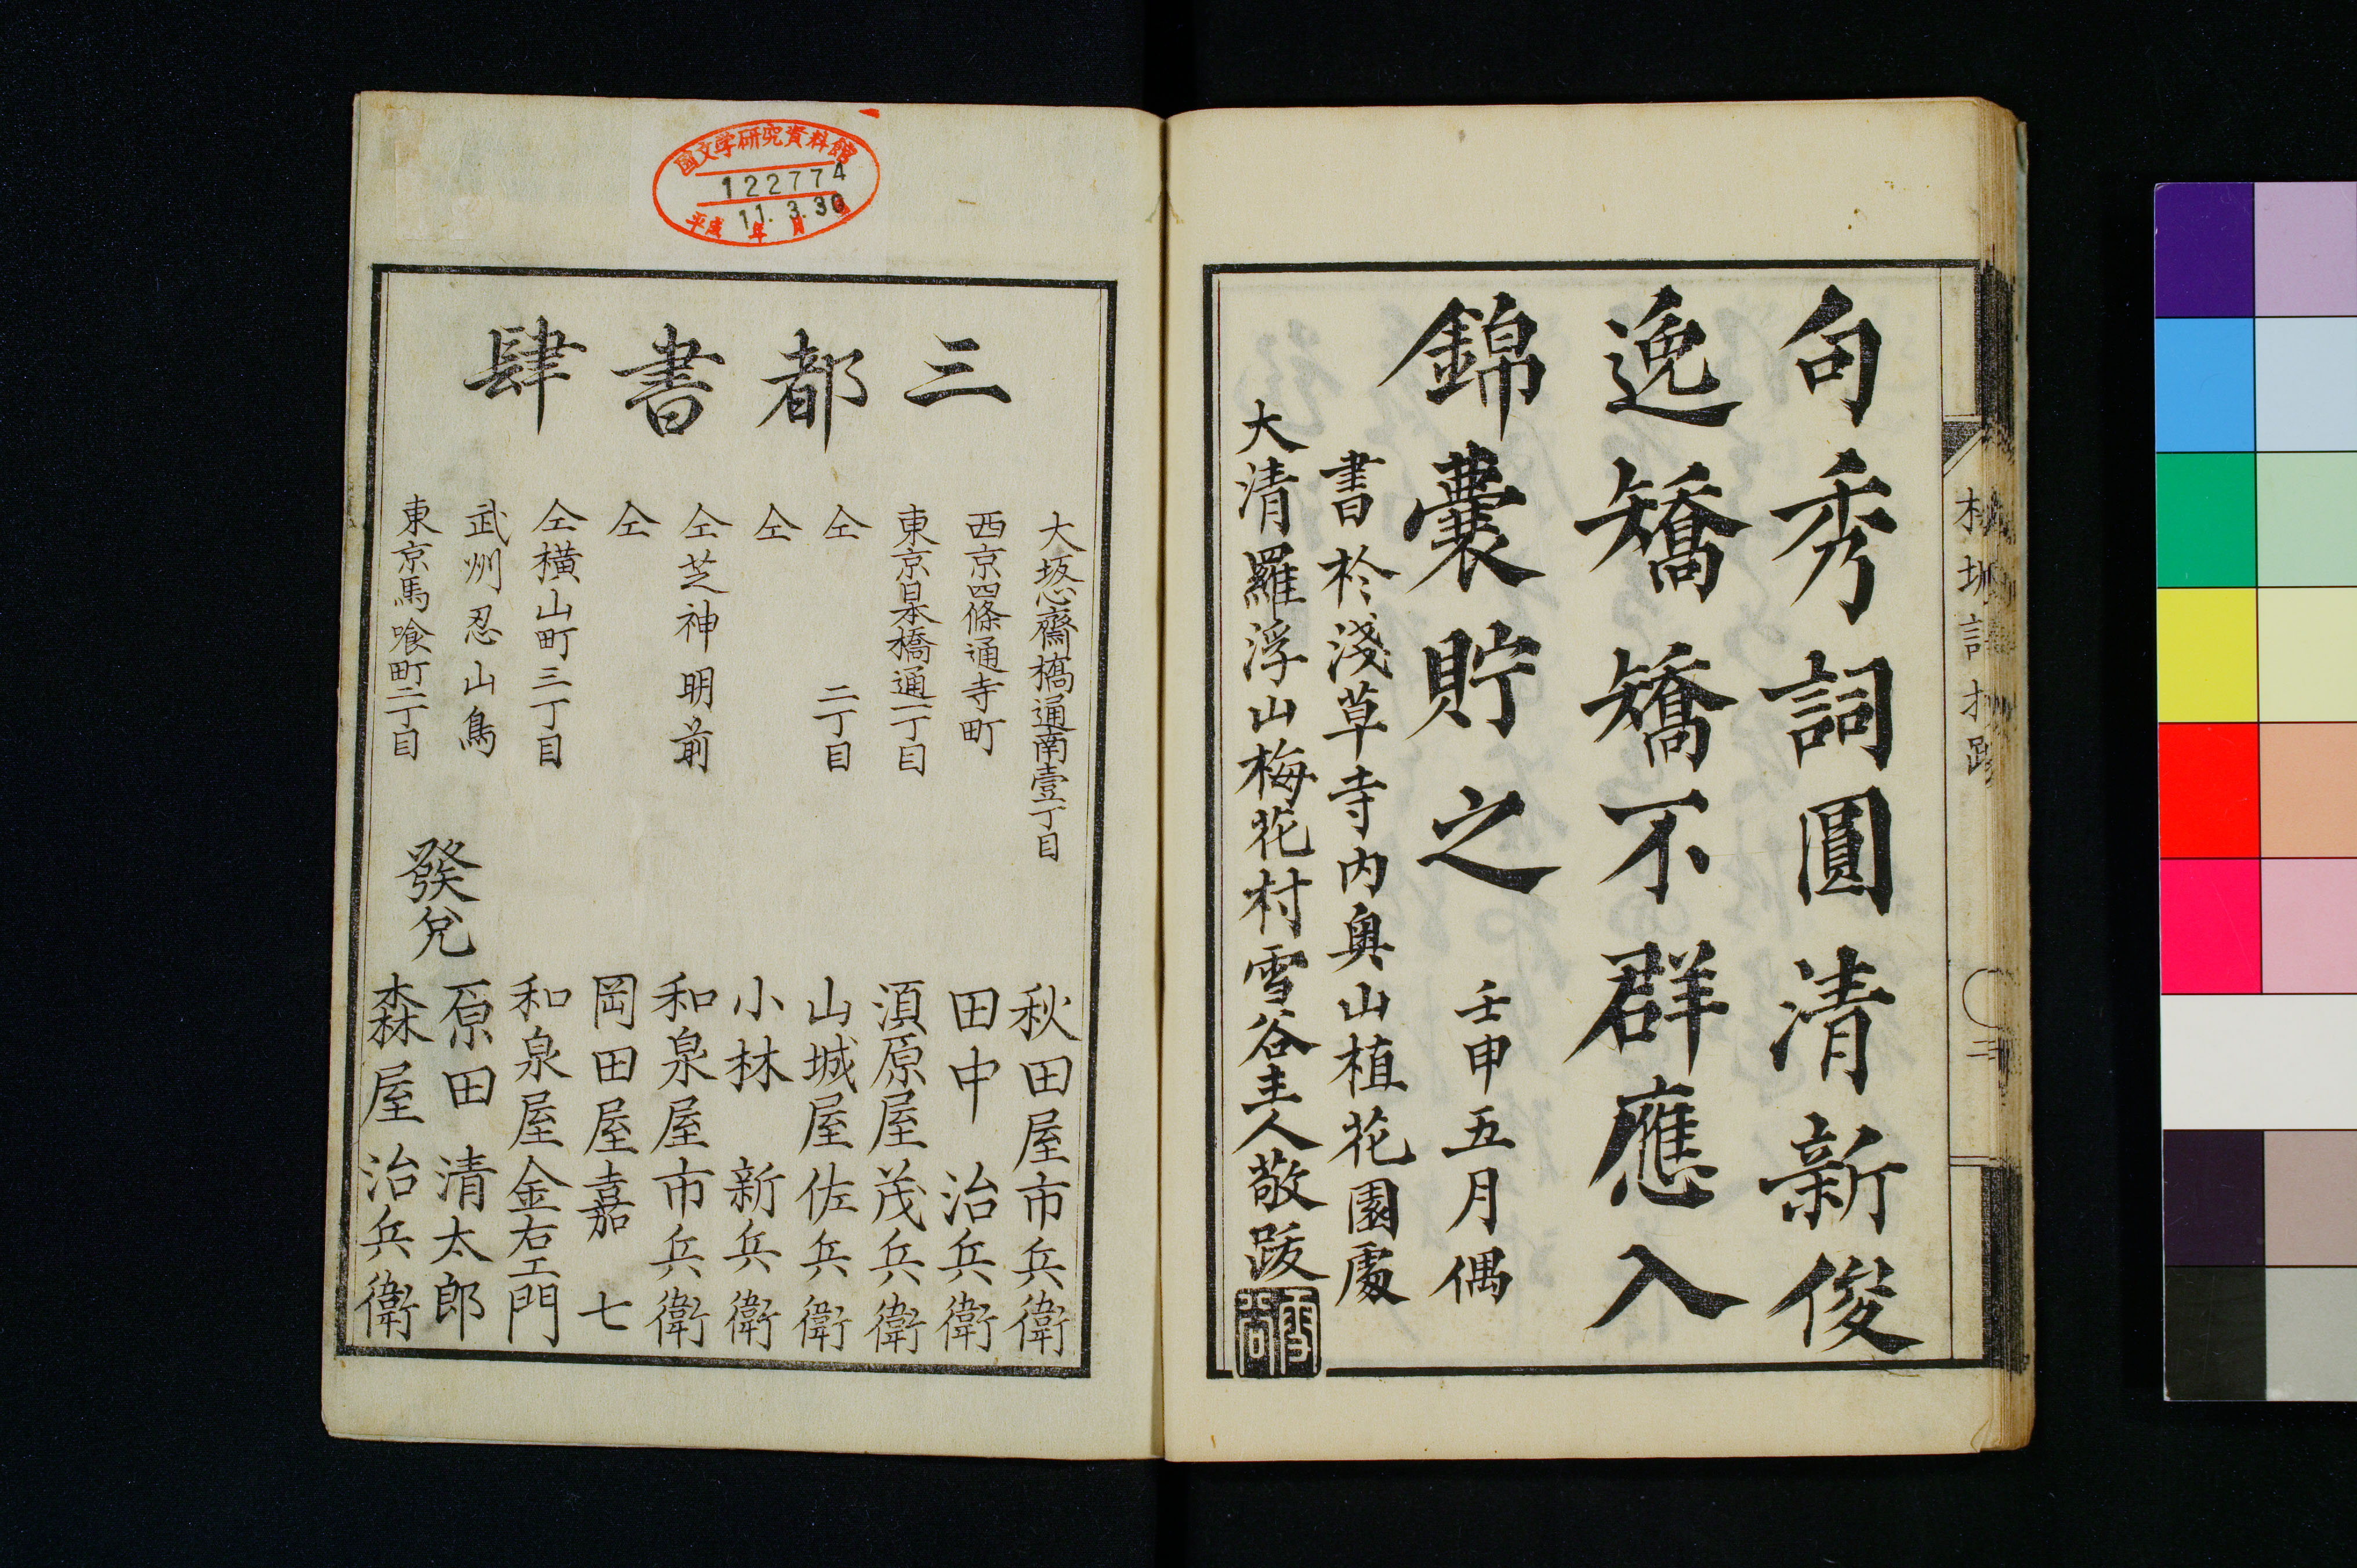 句秀詞圓清新俊
逸矯矯不群應入
錦囊貯之 壬申五月偶
書於淺草寺内奥山植花園處
大清羅浮山梅花村雪谷主人敬跋
國文学研究資料館
122774
平成 11.3.30
年 月
三都書肆
大坂心齋橋通南壹丁目 秋田屋市兵衛
西京四條通寺町 田中治兵衛
東京日本橋通一丁目 須原屋茂兵衛
仝 二丁目 山城屋佐兵衛
仝 小林新兵衛
仝芝神明前 和泉屋市兵衛
仝 岡田屋嘉七
仝横山町三丁目 和泉屋金右エ門
武州忍山鳥 原田清太郎
東京馬喰町二丁目 森屋治兵衛
發兌